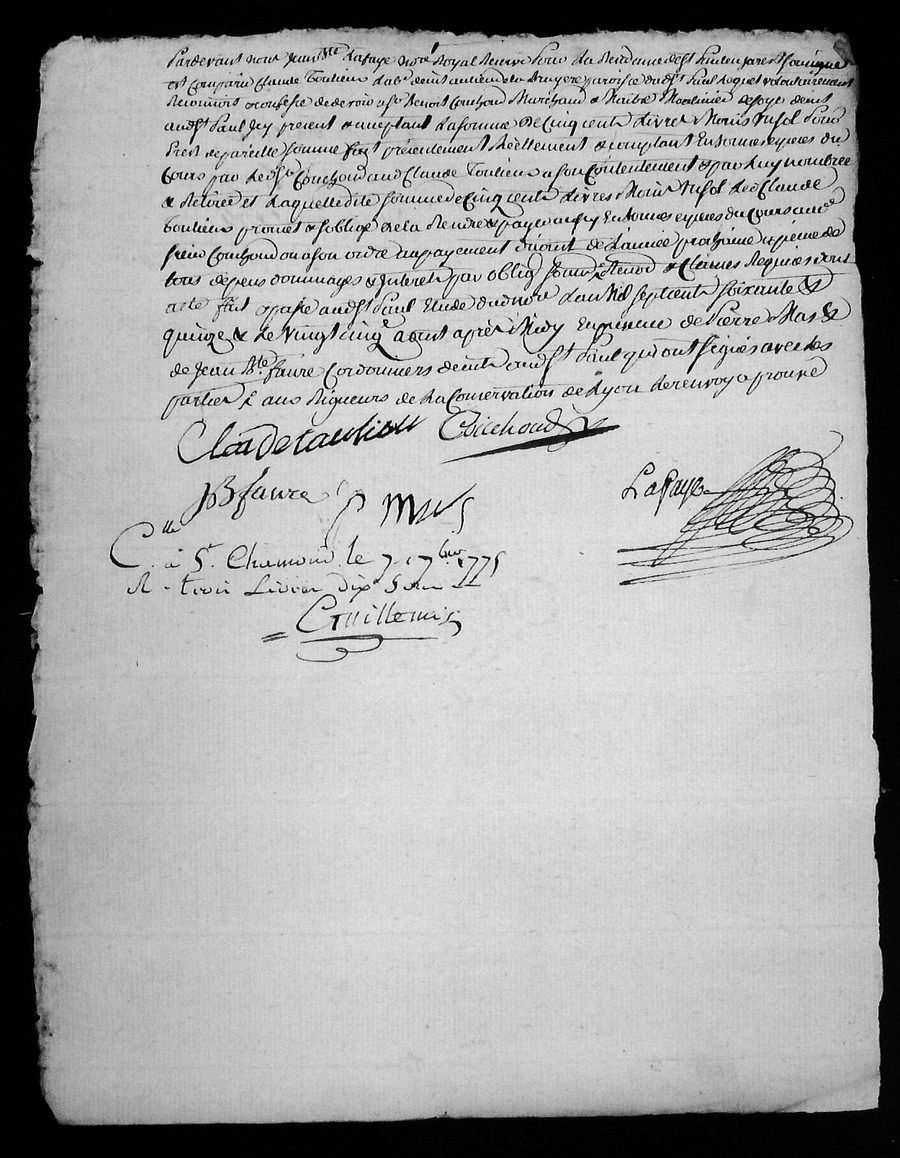 Pardevant nous Jean Bte Lafaye nore Royal Reservé pour la Residence de St Paul en Jarest soussigné
est comparu Claude Toulieu habt demt au lieu de la Bruyere paroisse dudt St Paul lequel volontairement
Reconnoit & confesse de devoir a sr Benoit Couchoud Marchand & Maitre Moulinier de soye demt
audt St Paul Icy present & acceptant La somme de Cinq cents Livres Tournois pour
Prest de pareille somme fait présentement Réellement & comptant En bonnes especes du
Cours par led Sr Couchoud aud Claude Toulieu a son Contentement & par luy nombrée
& Retirée et laquelle dite somme de Cinq cents Livres led Claude
Toulieu promet & s'oblige de la Rendre & payer En bonnes especes du Cours aud
sieur Couchoud ou a son ordre au payement d'aout de L'année prochaine a peine de
tous depens dommages & interets par oblign soumn Renon & Clauses Requises dont
acte fait & passé audt St Paul Etude du nore L'an Mil sept cents soixante &
quinze & le vingt cinq aout après Midy En presence de Pierre Mas &
de Jean Bte Faure Cordonniers demts audt St Paul qui ont signés avec les
parties & aux Rigueurs de la Conservation de Lyon le renvoy aprouvé
Claude Toulieu Couchoud
JB faure P Mas Lafaye
C lle à St Chamond le 7 7bre 1775
R - trois Livres dix sous
Guillemin